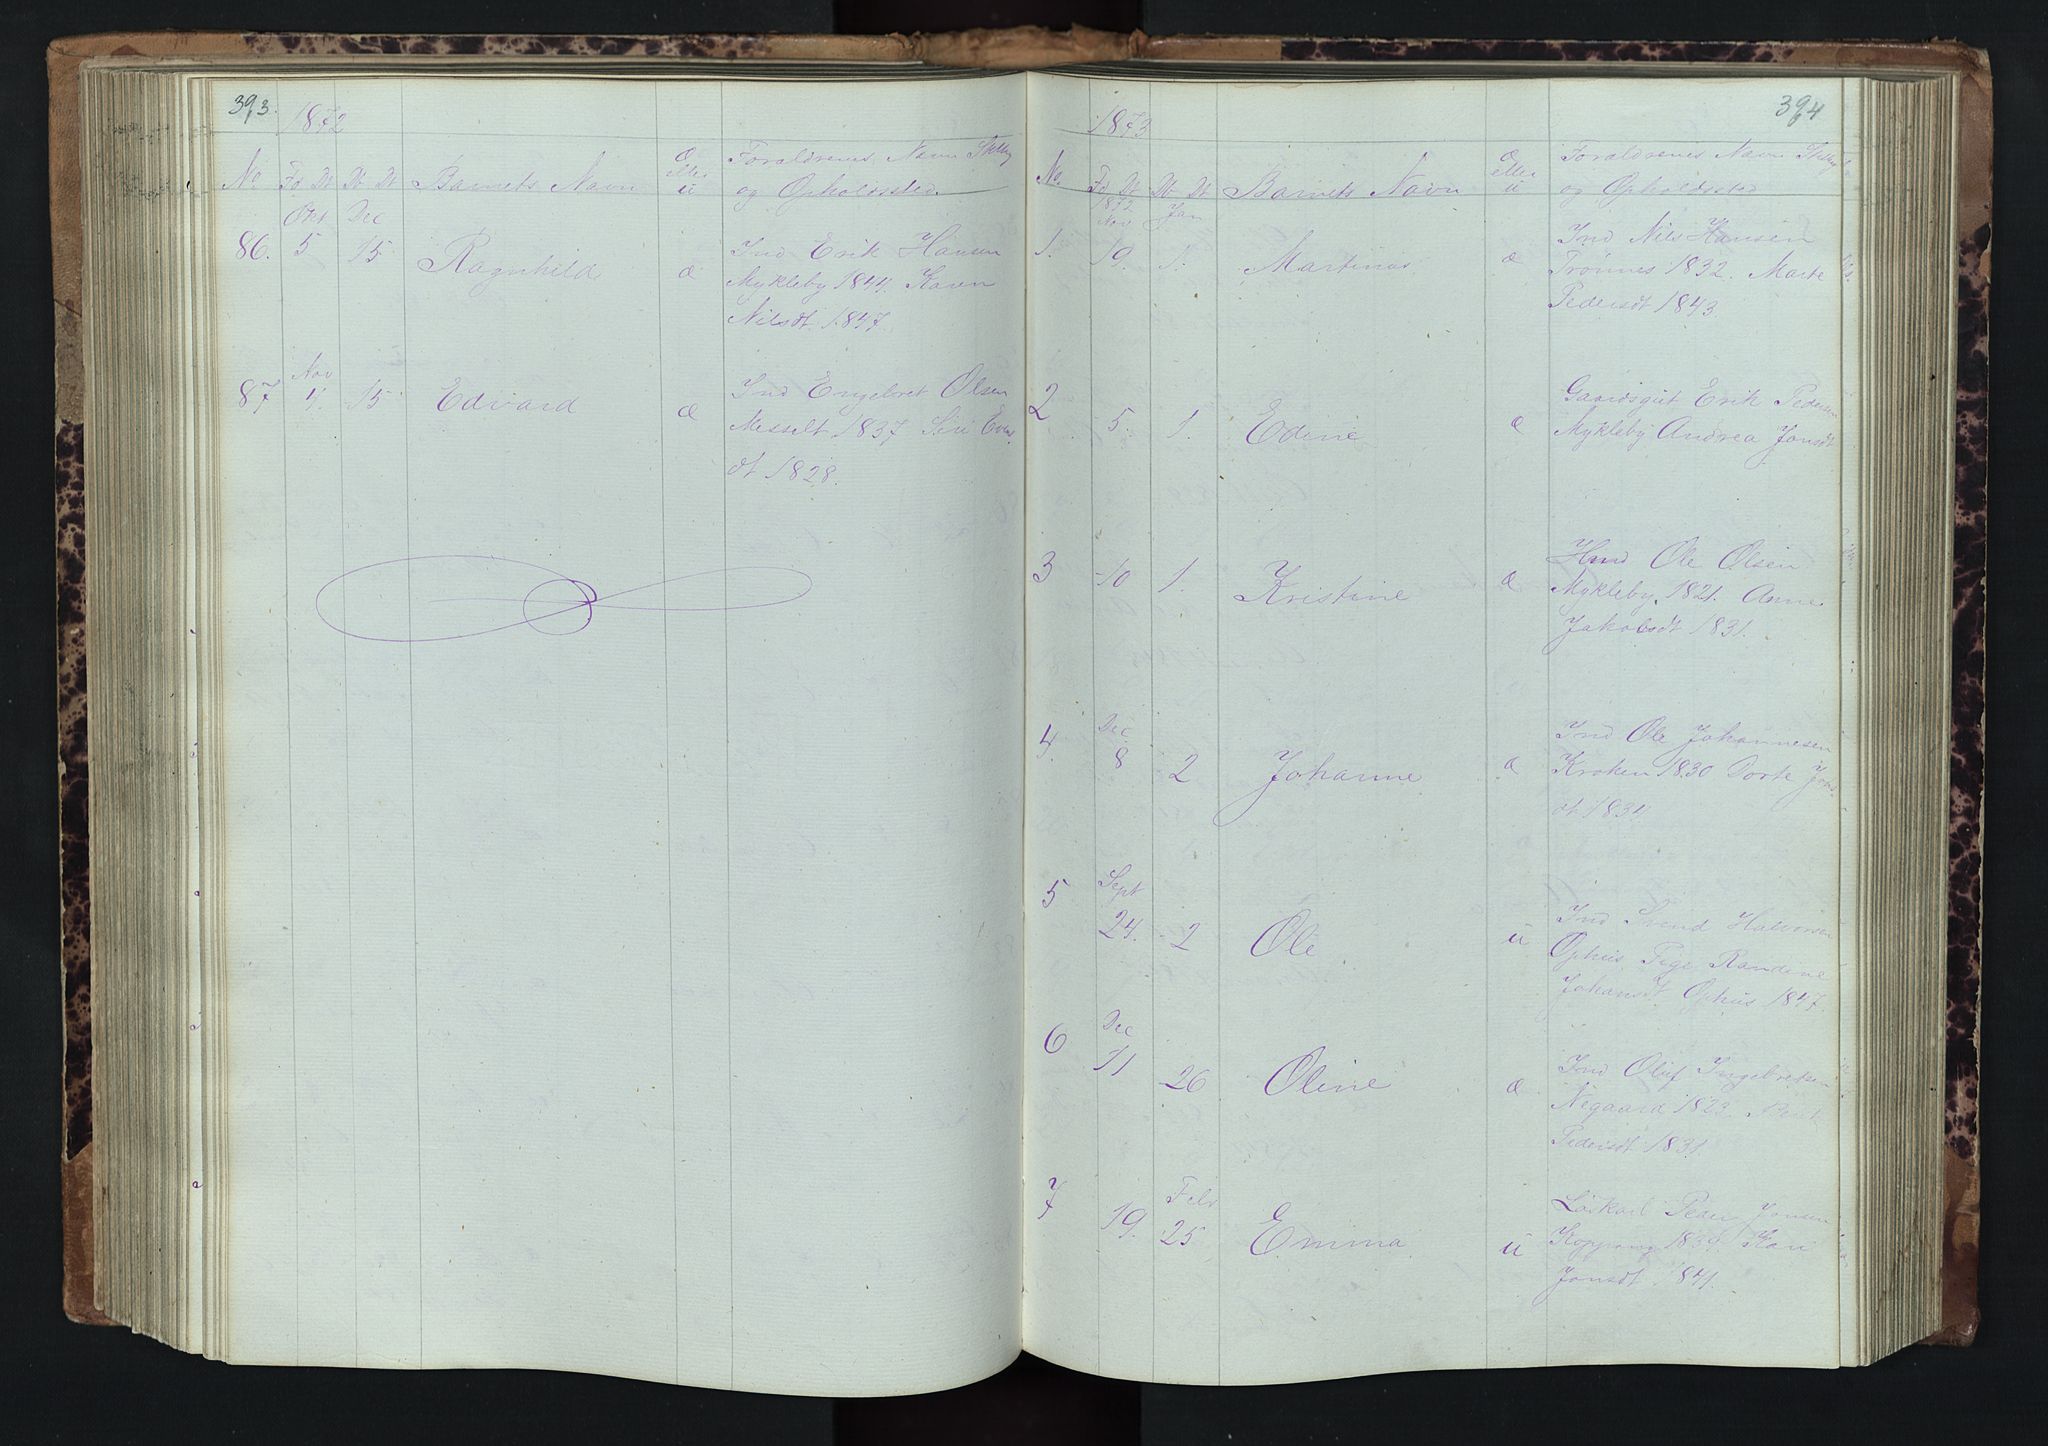 393.
1872
No Fd Dt Db Dt Barnets Navn æ eller u Forældrenes Navn Stilling
og Opholdssted
Okt Dec
86. 5 15 Ragnhild æ Ind Erik Hansen
Mykleby 1844. Karen
Nilsdt. 1847.
Nov
87 4. 15 Edvard æ Ind Engebret Olsen
Messelt 1837 Siri Evens
dt 1828.
394
1873
No. Fd Dt Db Dt Barnets Navn æ eller u Forældrenes Navn Stilling
og Opholdssted
1872
Nov Jan
1. 19. 1. Martinus æ Ind Nils Hansen
Trønnes 1832. Marte
Pedersdt 1843.
2 5. 1. Edine æ Gaardsgut Erik Pedersen
Mykleby Andrea Jonsdt
3 10 1. Kristine æ Hmd Ole Olsen
Mykleby. 1821. Anne
Jakobsdt 1831.
Dec.
4. 8 2 Johanne æ Ind Ole Johannesen
Kroken 1830 Dorte
dt 1834
Sept
5 24. 2 Ole u Ind Svend Halvorsen
Ophus Pige Randine
Johansdt. Ophus 1847.
Dec
6 11 26 Oline æ Ind Oluf Ingebretsen
Negaard 1823.
Pedersdt 1831.
Febr
7 19. 25 Emma u Løskarl Peder Jonsen
Koppang Kari
Jonsdt 1841.